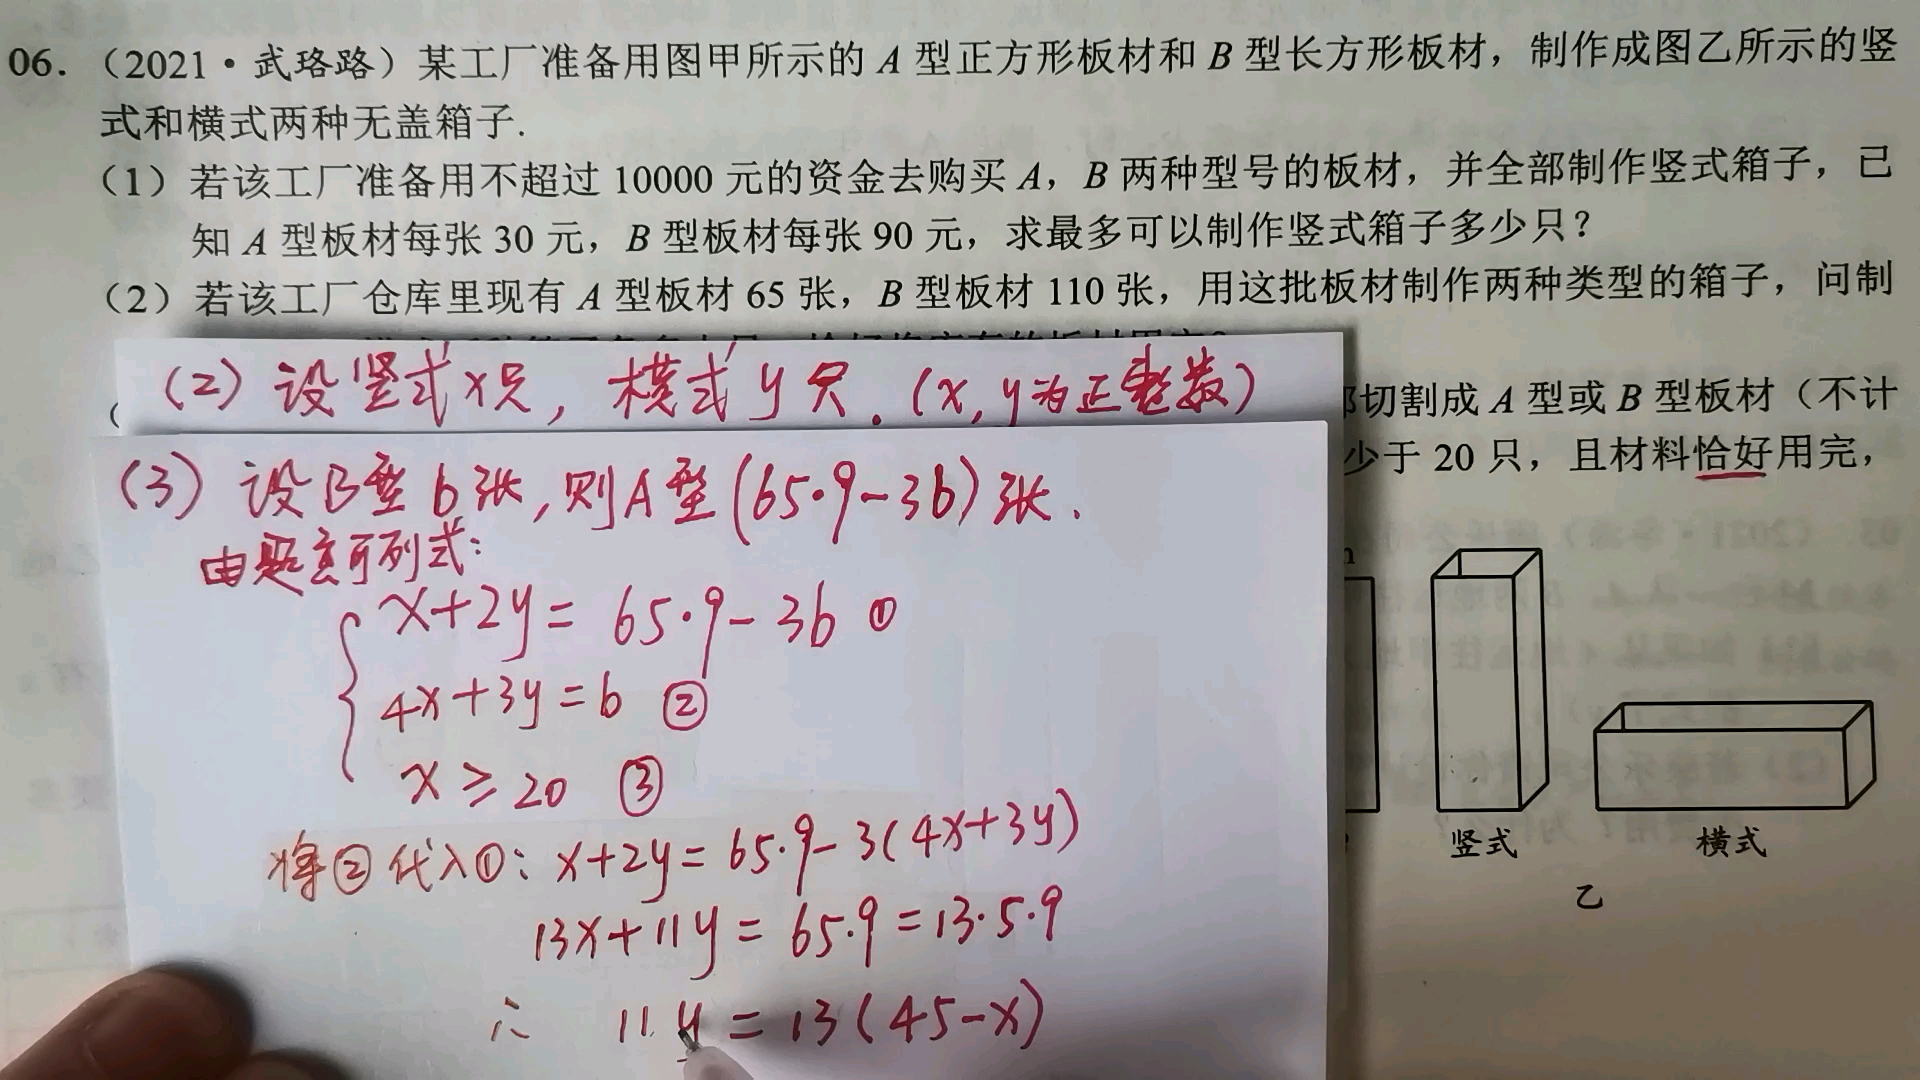 06.（2021·武珞路）某工厂准备用图甲所示的 A 型正方形板材和 B 型长方形板材，制作成图乙所示的竖
式和横式两种无盖箱子.
（1）若该工厂准备用不超过 10000 元的资金去购买 A，B 两种型号的板材，并全部制作竖式箱子，已
知 A 型板材每张 30 元，B 型板材每张 90 元，求最多可以制作竖式箱子多少只？
（2）若该工厂仓库里现有 A 型板材 65 张，B 型板材 110 张，用这批板材制作两种类型的箱子，问制
(2) 设竖式x只，横式y只.（x,y为正整数）
切割成 A 型或 B 型板材（不计
少于 20 只，且材料恰好用完，
(3) 设B型b张,则A型(65·9-3b)张.
由题意可列式:
x+2y=65·9-3b ①
4x+3y=b ②
x≥20 ③
将②代入①: x+2y=65·9-3(4x+3y)
13x+11y=65·9=13·5·9
∴ 11y=13(45-x)
竖式
横式
乙